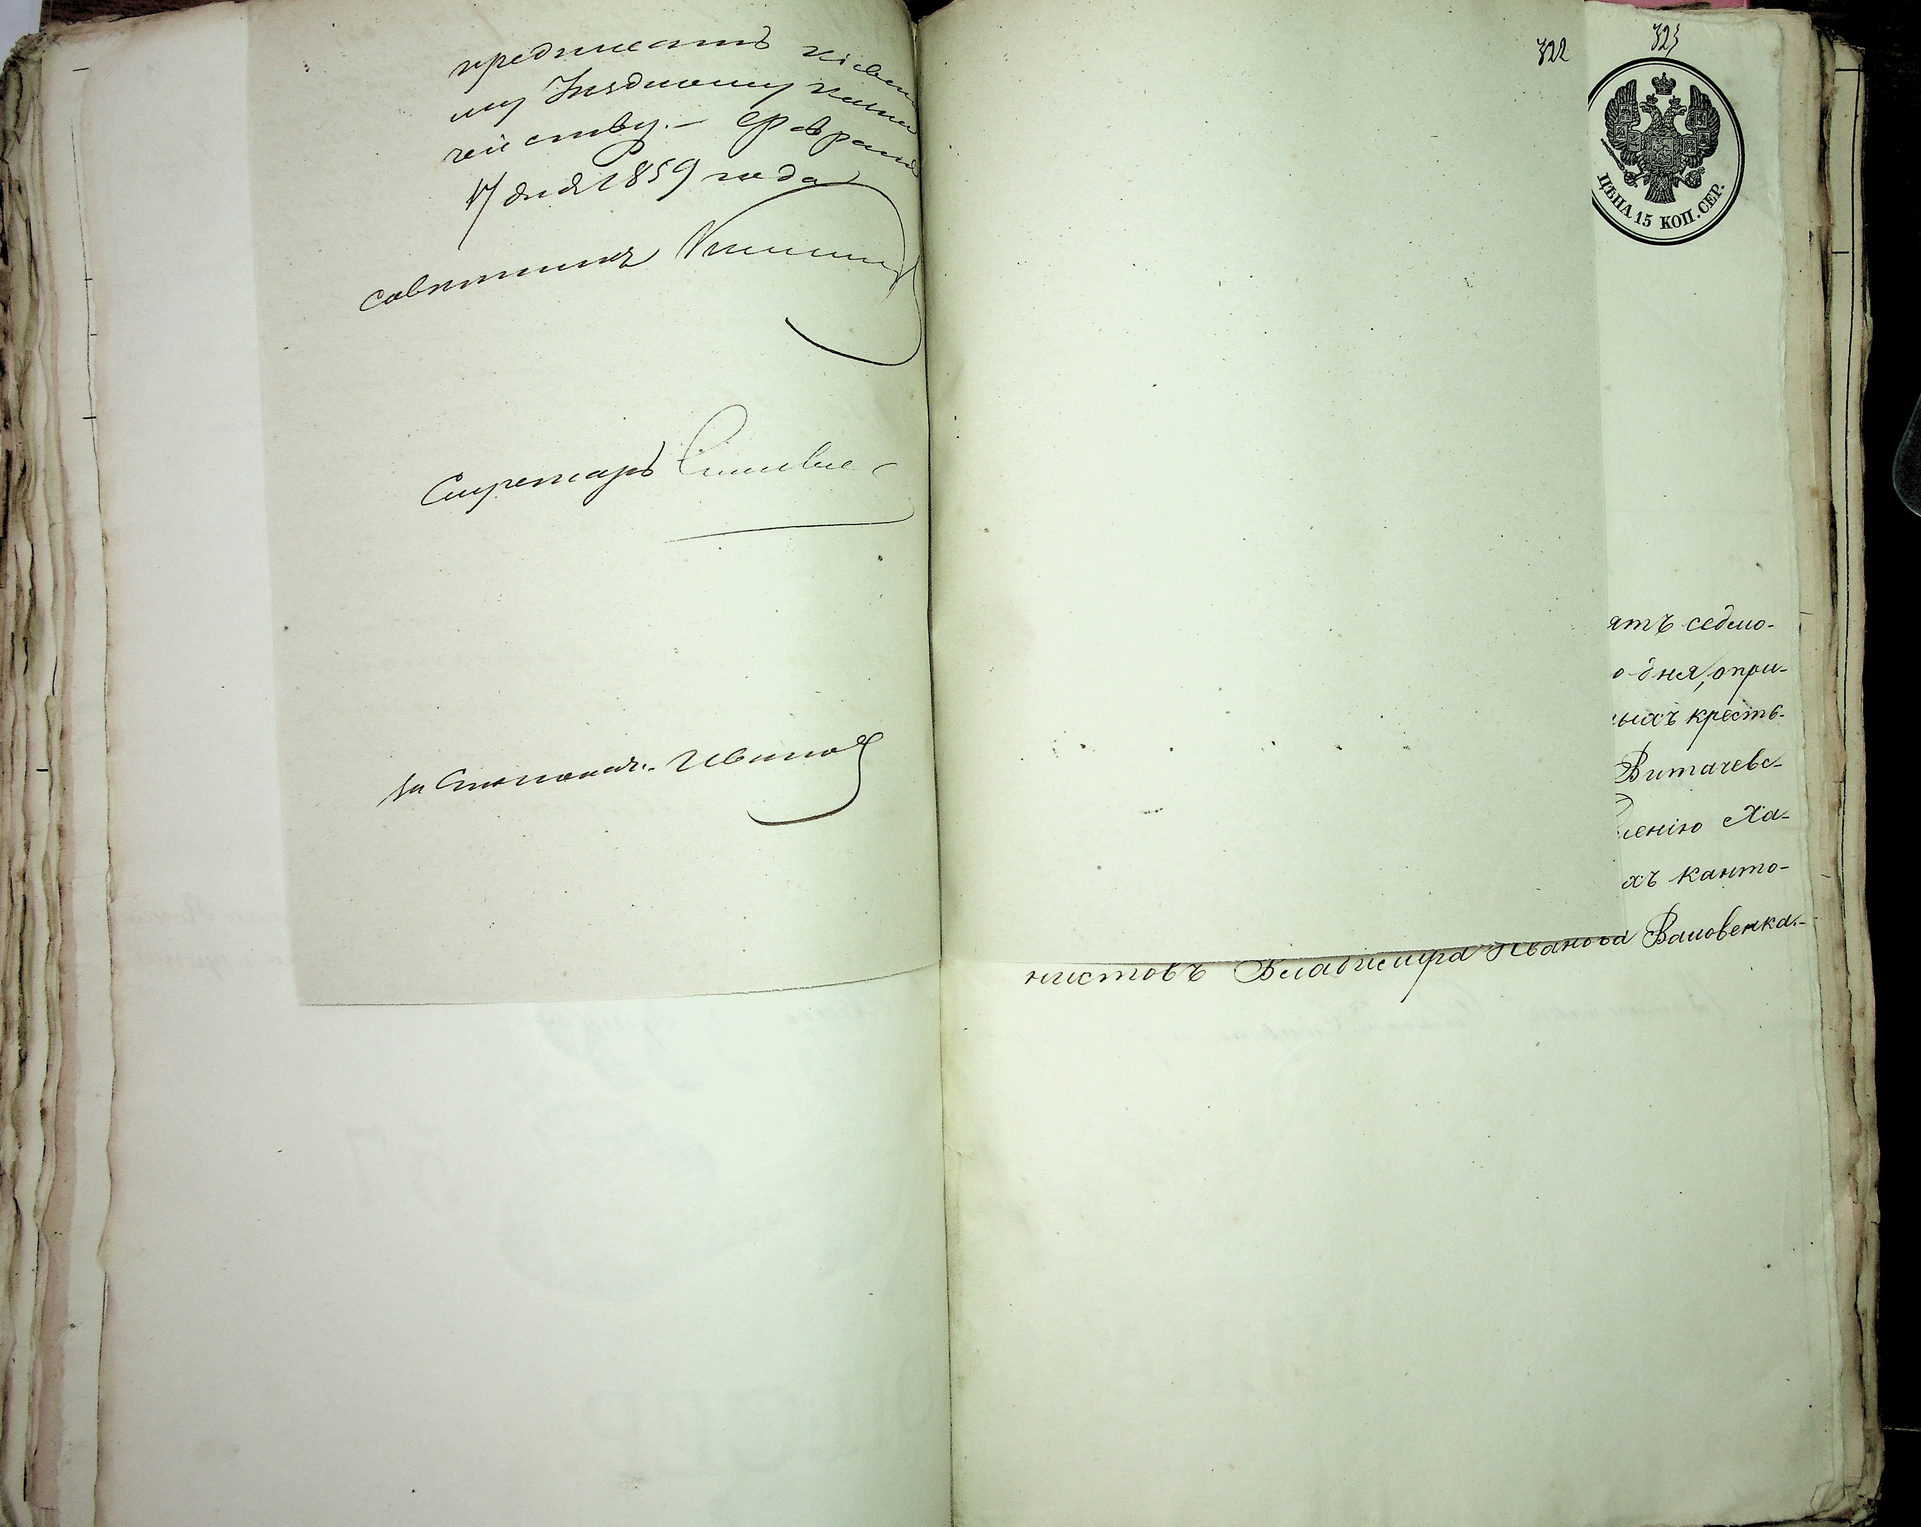 предписать Кіевско
му Уѣздному казна
чейству. — Февраля
17 дня 1859 года
Совѣтникъ
Секретарь
За Столонач. Ивановъ
322
323
ЦѢНА 15 КОП. СЕР.
ятъ седмо-
о дня, опри-
ныхъ кресть-
Витачевс-
ленію Ха-
хъ канто-
нистовъ Владимира Иванова Вановенка.-